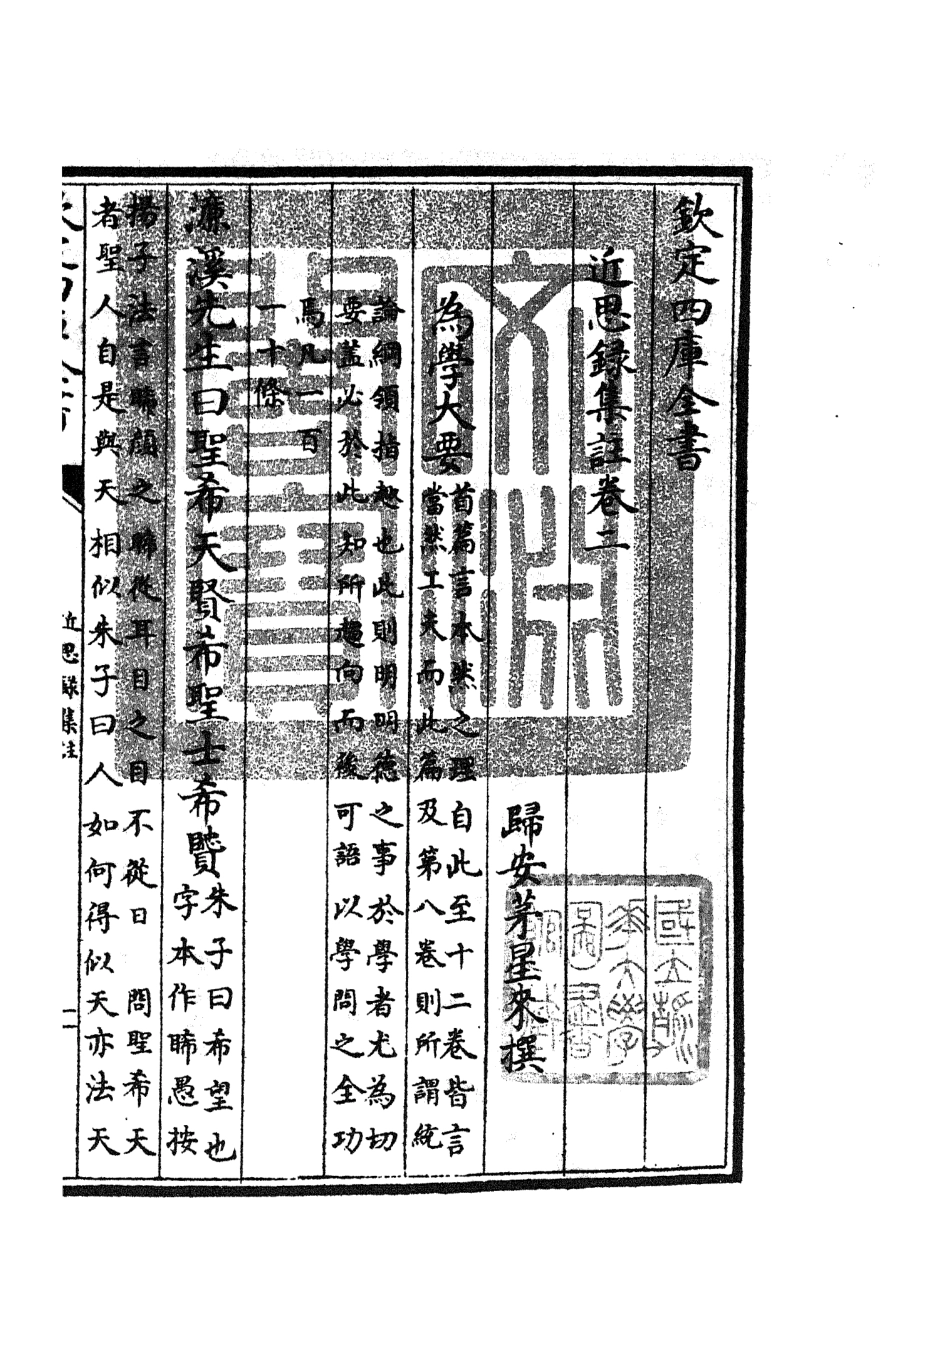 欽定四庫全書
近思錄集註卷二
歸安茅星來撰
為學大要
首篇言本然之理自此至十二卷皆言
當然工夫而此篇及第八卷則所謂統
論綱領指趣也此則明明德之事於學者尤為切
要蓋必於此知所趨向而後可語以學問之全功
焉凡一百
一十條
濂溪先生曰聖希天賢希聖士希賢
朱子曰希望也
字本作睎愚按
揚子法言睎顏之睎從耳目之目不從日 問聖希天
者聖人自是與天相似朱子曰人如何得似天亦法天
近思錄集註
文淵
國立清華大學
圖書